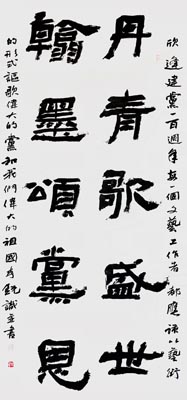 欣逢建黨一百週年每一個文藝工作者都應該以藝術
丹青歌盛世
翰墨頌黨恩
的形式謳歌偉大的黨和我們偉大的祖國